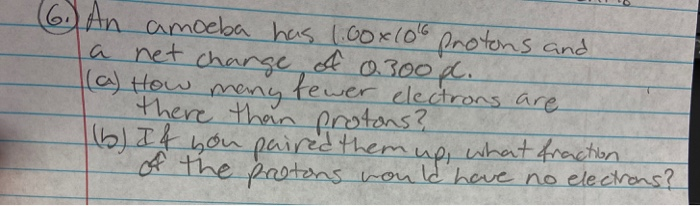 6. An amoeba has 1.00×10¹⁶ protons and
a net change of 0.300 pC.
(a) How many fewer electrons are
there than protons?
(b) If you paired them up, what fraction
of the protons would have no electrons?